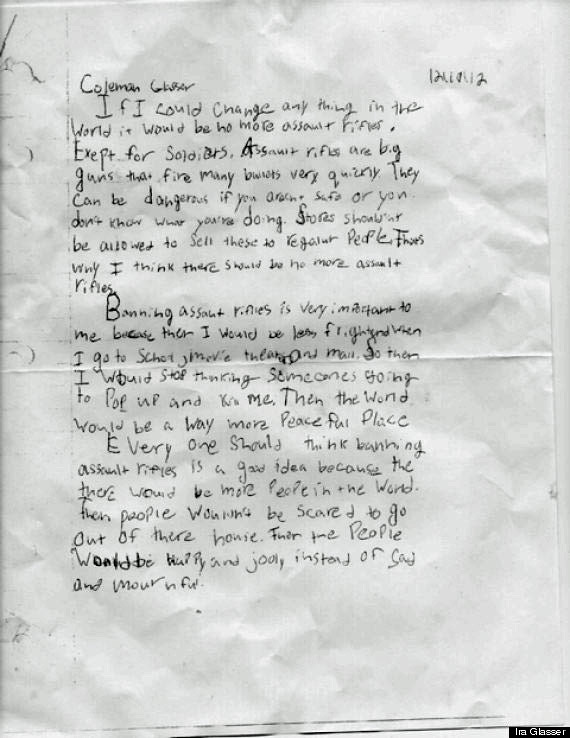 Coleman Glasser
If I could Change any thing in the
World it would be no more assault rifles.
Exept for Soldiers. Assault rifles are big
guns that fire many bullets very quickly. They
can be dangerous if you arent safe or you
dont know what you're doing. Stores
be allowed to sell these to People. Thats
why I think there should be no more assault
rifles.
Banning assaut rifles is very important to
me becase then I would be less when
I go to School, movie theater, and mall. So then
I would stop thinking Someones going
to Pop up and kill me. Then the World
would be a way more Peaceful Place
Every one Should think banning
assault rifles is a good idea because the
there would be more People in the World.
Then people Wouldn't be Scared to go
out of there house. the People
Would be Happy and jooly instead of Sad
and mournful.
Ira Glasser